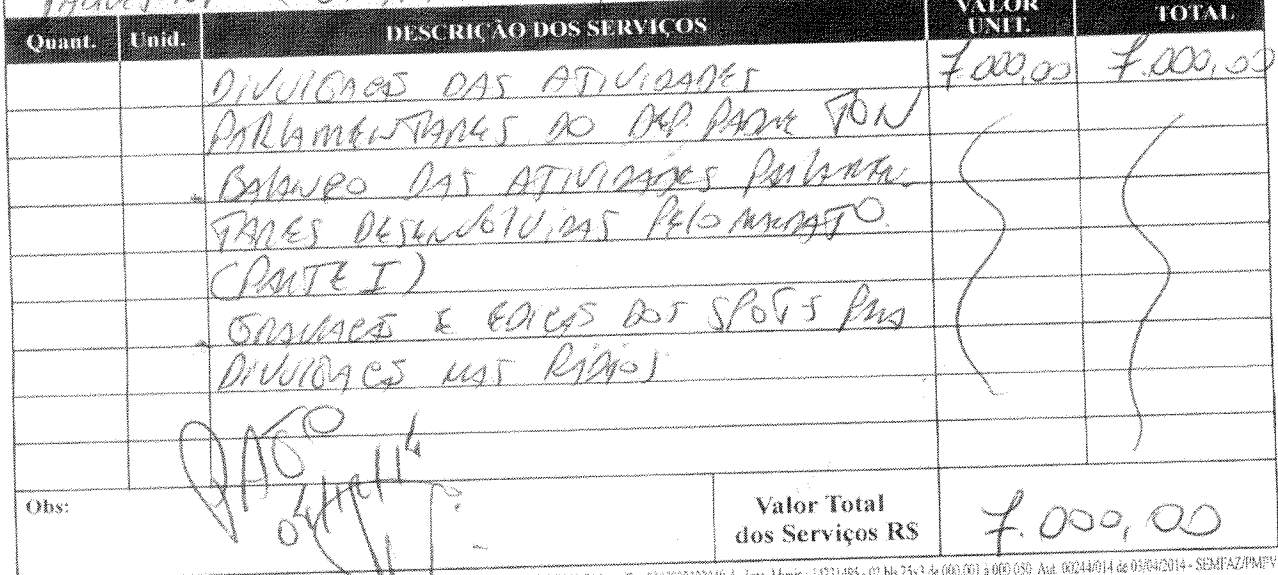 Quant. Unid. DESCRIÇÃO DOS SERVIÇOS VALOR UNIT. TOTAL
DIVULGAÇÃO DAS ATIVIDADES 7.000,00 7.000,00
PARLAMENTARES DO DEP. PADRE TON
BALANÇO DAS ATIVIDADES PARLAMEN-
TARES DESENVOLVIDAS PELO MANDATO.
(PARTE I)
GRAVAÇÃO E EDIÇÃO DOS SPOTS PARA
DIVULGAÇÃO NAS RÁDIOS
PAGO
Obs: Valor Total
dos Serviços R$ 7.000,00
000.001 à 000.050 Aut. 00244/014 de 03/04/2014 - SEMFAZ/PMPV